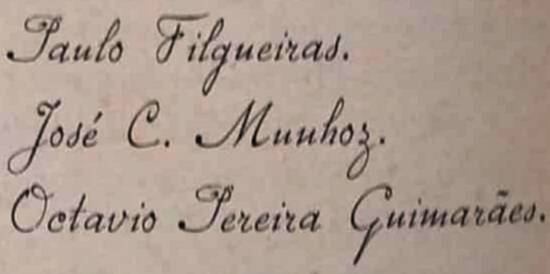 Paulo Filgueiras.
José C. Munhoz.
Octavio Pereira Guimarães.